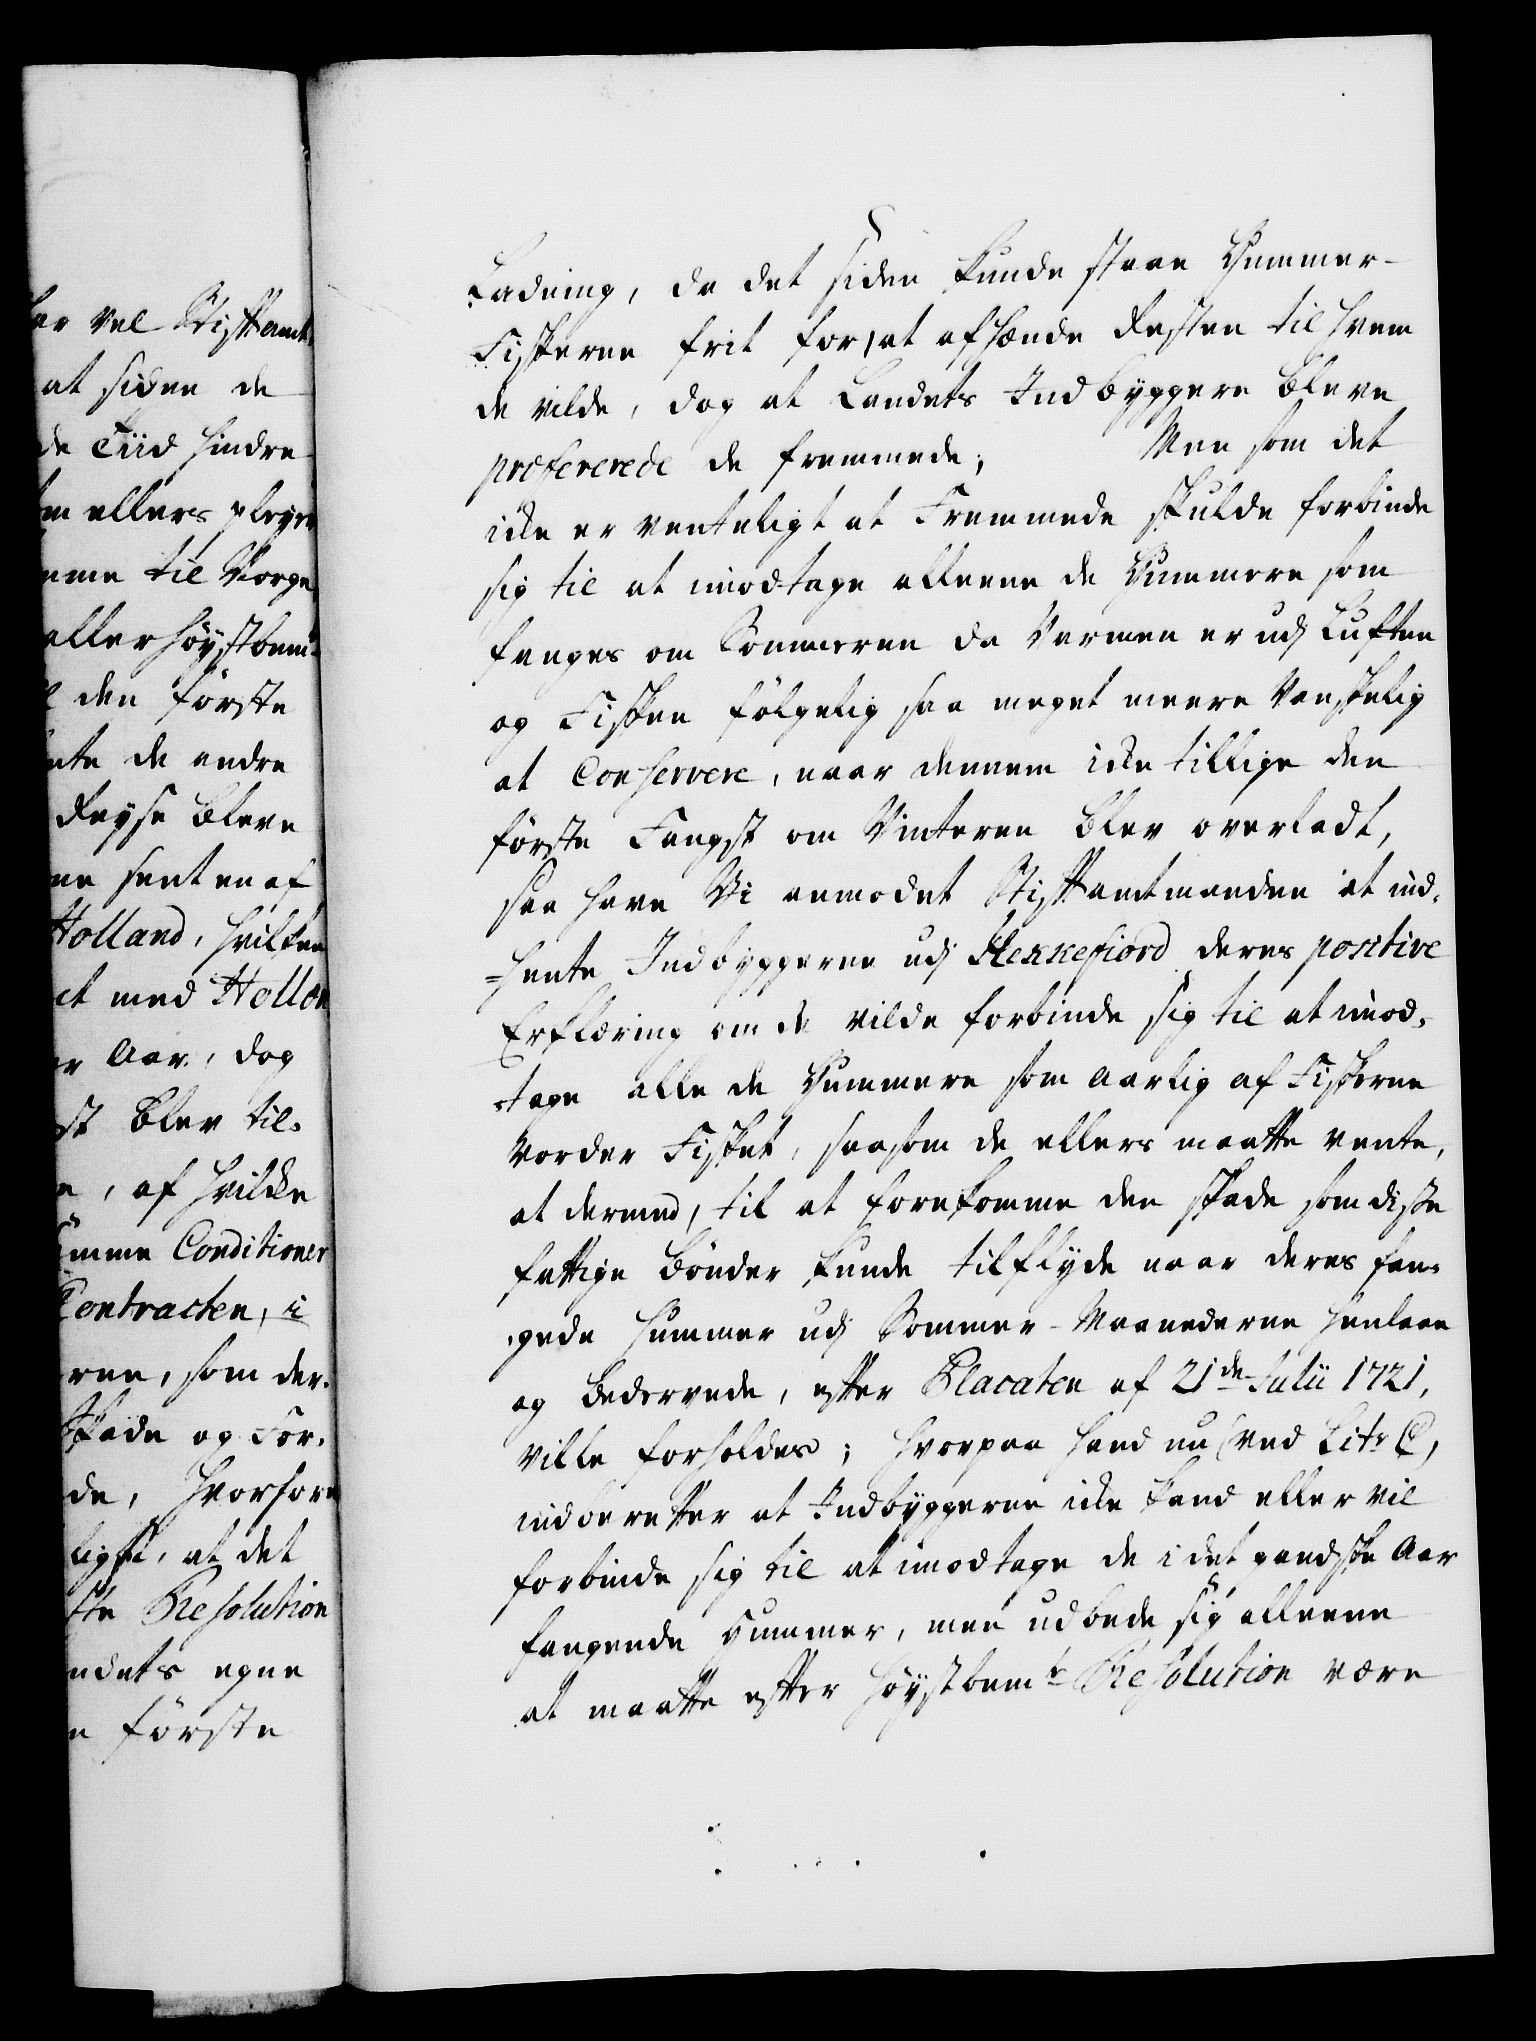 ar vel Stiftamt,
at siden de
de Tiid hindre
m ellers pleye
mme til Norge
allerhøystbem:
den første
nte de andre
Reyse bleve
ne sente af
Holland, hvilken
et med Hollæn
r Aar, dog
st blev til-
e, af hvilcke
amme Conditioner
Contracten, i
rne, som der-
Skade og For-
de, hvorfore
ligst, at det
te Resolution
ndets egne
e første
Ladning, da det siden kunde staae Hummer-
Fiskerne frit for, at afhænde Resten til hvem
de vilde, dog at Landets Indbyggere bleve
præfererede de fremmede; Men som det
icke er venteligt at Fremmede skulde forbinde
sig til at imodtage alleene de Hummere som
fanges om Sommeren da Varmen er udj Luften
og Fisken følgelig saa meget meere Vanskelig
at Conservere, naar dennem icke tillige den
første Fangst om Vinteren blev overladt,
saa have Vi anmodet Stiftamtmanden at ind-
-hente Indbyggerne udj Flekkefiord deres positive
Erklæring om de vilde forbinde sig til at imod-
-tage alle de Hummere som aarlig af Fiskerne
vorder Fisket, saasom de ellers maatte vente,
at dermed, til at forekomme den Skade som disse
fattige Bønder kunde tilflyde naar deres fan-
-gede Hummer udj Sommer-Maanederne henlaae
og bedervede, efter Placaten af 21de Julii 1721,
ville forholdes; hvorpaa hand nu (ved Litr C,
indberetter at Indbyggerne icke kand eller vil
forbinde sig til at imodtage de i det gandske Aar
fangende Hummer, men udbede sig alleene
at maatte efter høystbemte Resolution være